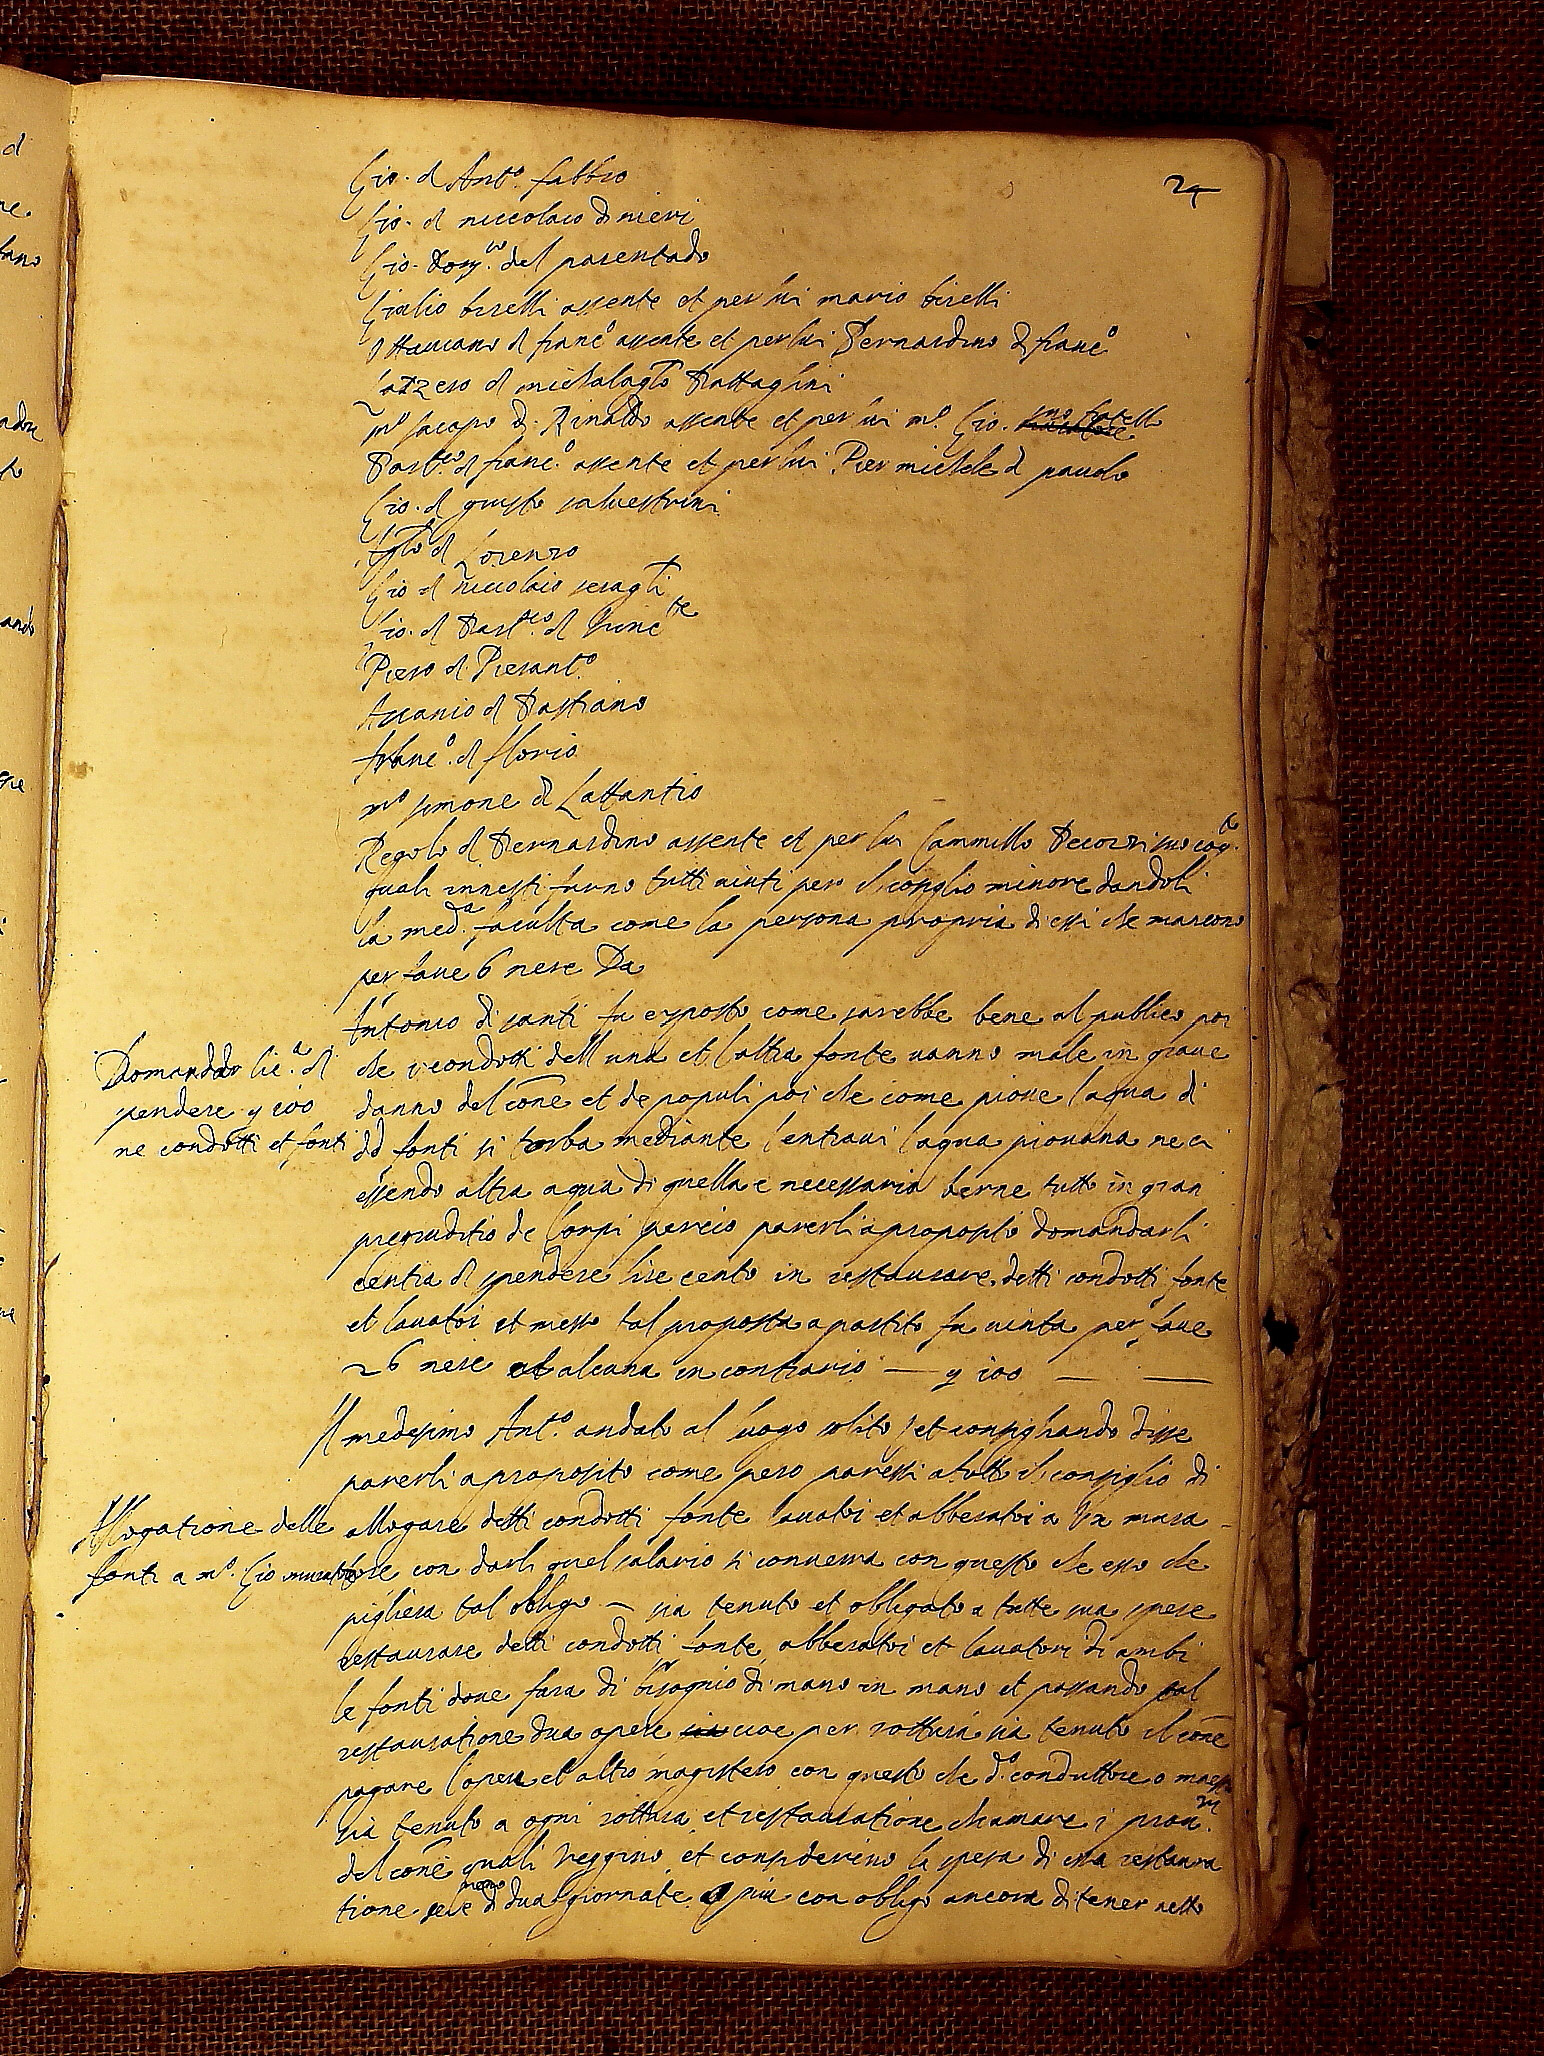 24
Gio. d Ant.o fabbro
Gio. d niccolaio d nieri
Gio. Dom.co del parentado
Giulio birelli assente et per lui mario birelli
Ottaviano d franc.o assente et per lui Bernardino d franc.o
Lazzero d michelag.lo Battaglini
m.o Jacopo d Rinaldo assente et per lui m.o Gio. suo fratello
Bart.eo d franc.o assente et per lui Pier michele d pauolo
Gio. d giusto saluestrini
d Lorenzo
Gio d niccolaio
Gio. d Bart.eo d Vinc.te
Piero d Pierant.o
Ascanio d Bastiano
franc.o d florio
m.o simone d Lattantio
Regolo d Bernardino assente et per lui Cammillo Pecorri suo cog.to
quali innesti furno tutti uinti pero il consiglio minore dandoli
la med.a faculta come la persona propria di essi che mancono
per faue 6 nere Da
Antonio di santi fu esposto come sarebbe bene al publico poi
che i condotti dell una et l altra fonte uanno male in graue
danno del cōne et de populi poi che come pioue l aqua di
dd fonti si torba mediante l entraui l aqua piouana ne ci
essendo altra aqua di quella e necessario berne tutto in gran
pregiuditio de Corpi percio parerli a proposito domandar li
centia di spendere lire cento in restaurare detti condotti fonte
et lauatoi et messo tal proposta a partito fu uinta per faue
26 nere alcuna in contrario — 100 — —
Domandato lic.a di
spendere 100
ne condotti et fonti
Il medesimo Ant.o andato al luogo solito et consigliando disse
parerli a proposito come pero paressi a tutto il consiglio di
allogare detti condotti fonte lauatoi et abberatoi a Un mura-
tore con darli quel salario si conuerra con questo che esso che
pigliera tal obligo — sia tenuto et obligato a tutte sua spese
restaurare detti condotti fonte abberatoi et lauatori di ambi
le fonti doue fara di bisognio di mano in mano et passando tal
restauratione dua opere cioe per rottura sia tenuto il cōne
pagare l opera et altro magistero con questo che d.o conduttore o maest
sia tenuto a ogni rottura et restauratione chiamare i
del cōne quali Veggino et considerino la spesa di essa restaura
tione se e meno d dua giornate o piu con obligo ancora di tener netto
Allogatione delle
fonti a m.o Gio muratore